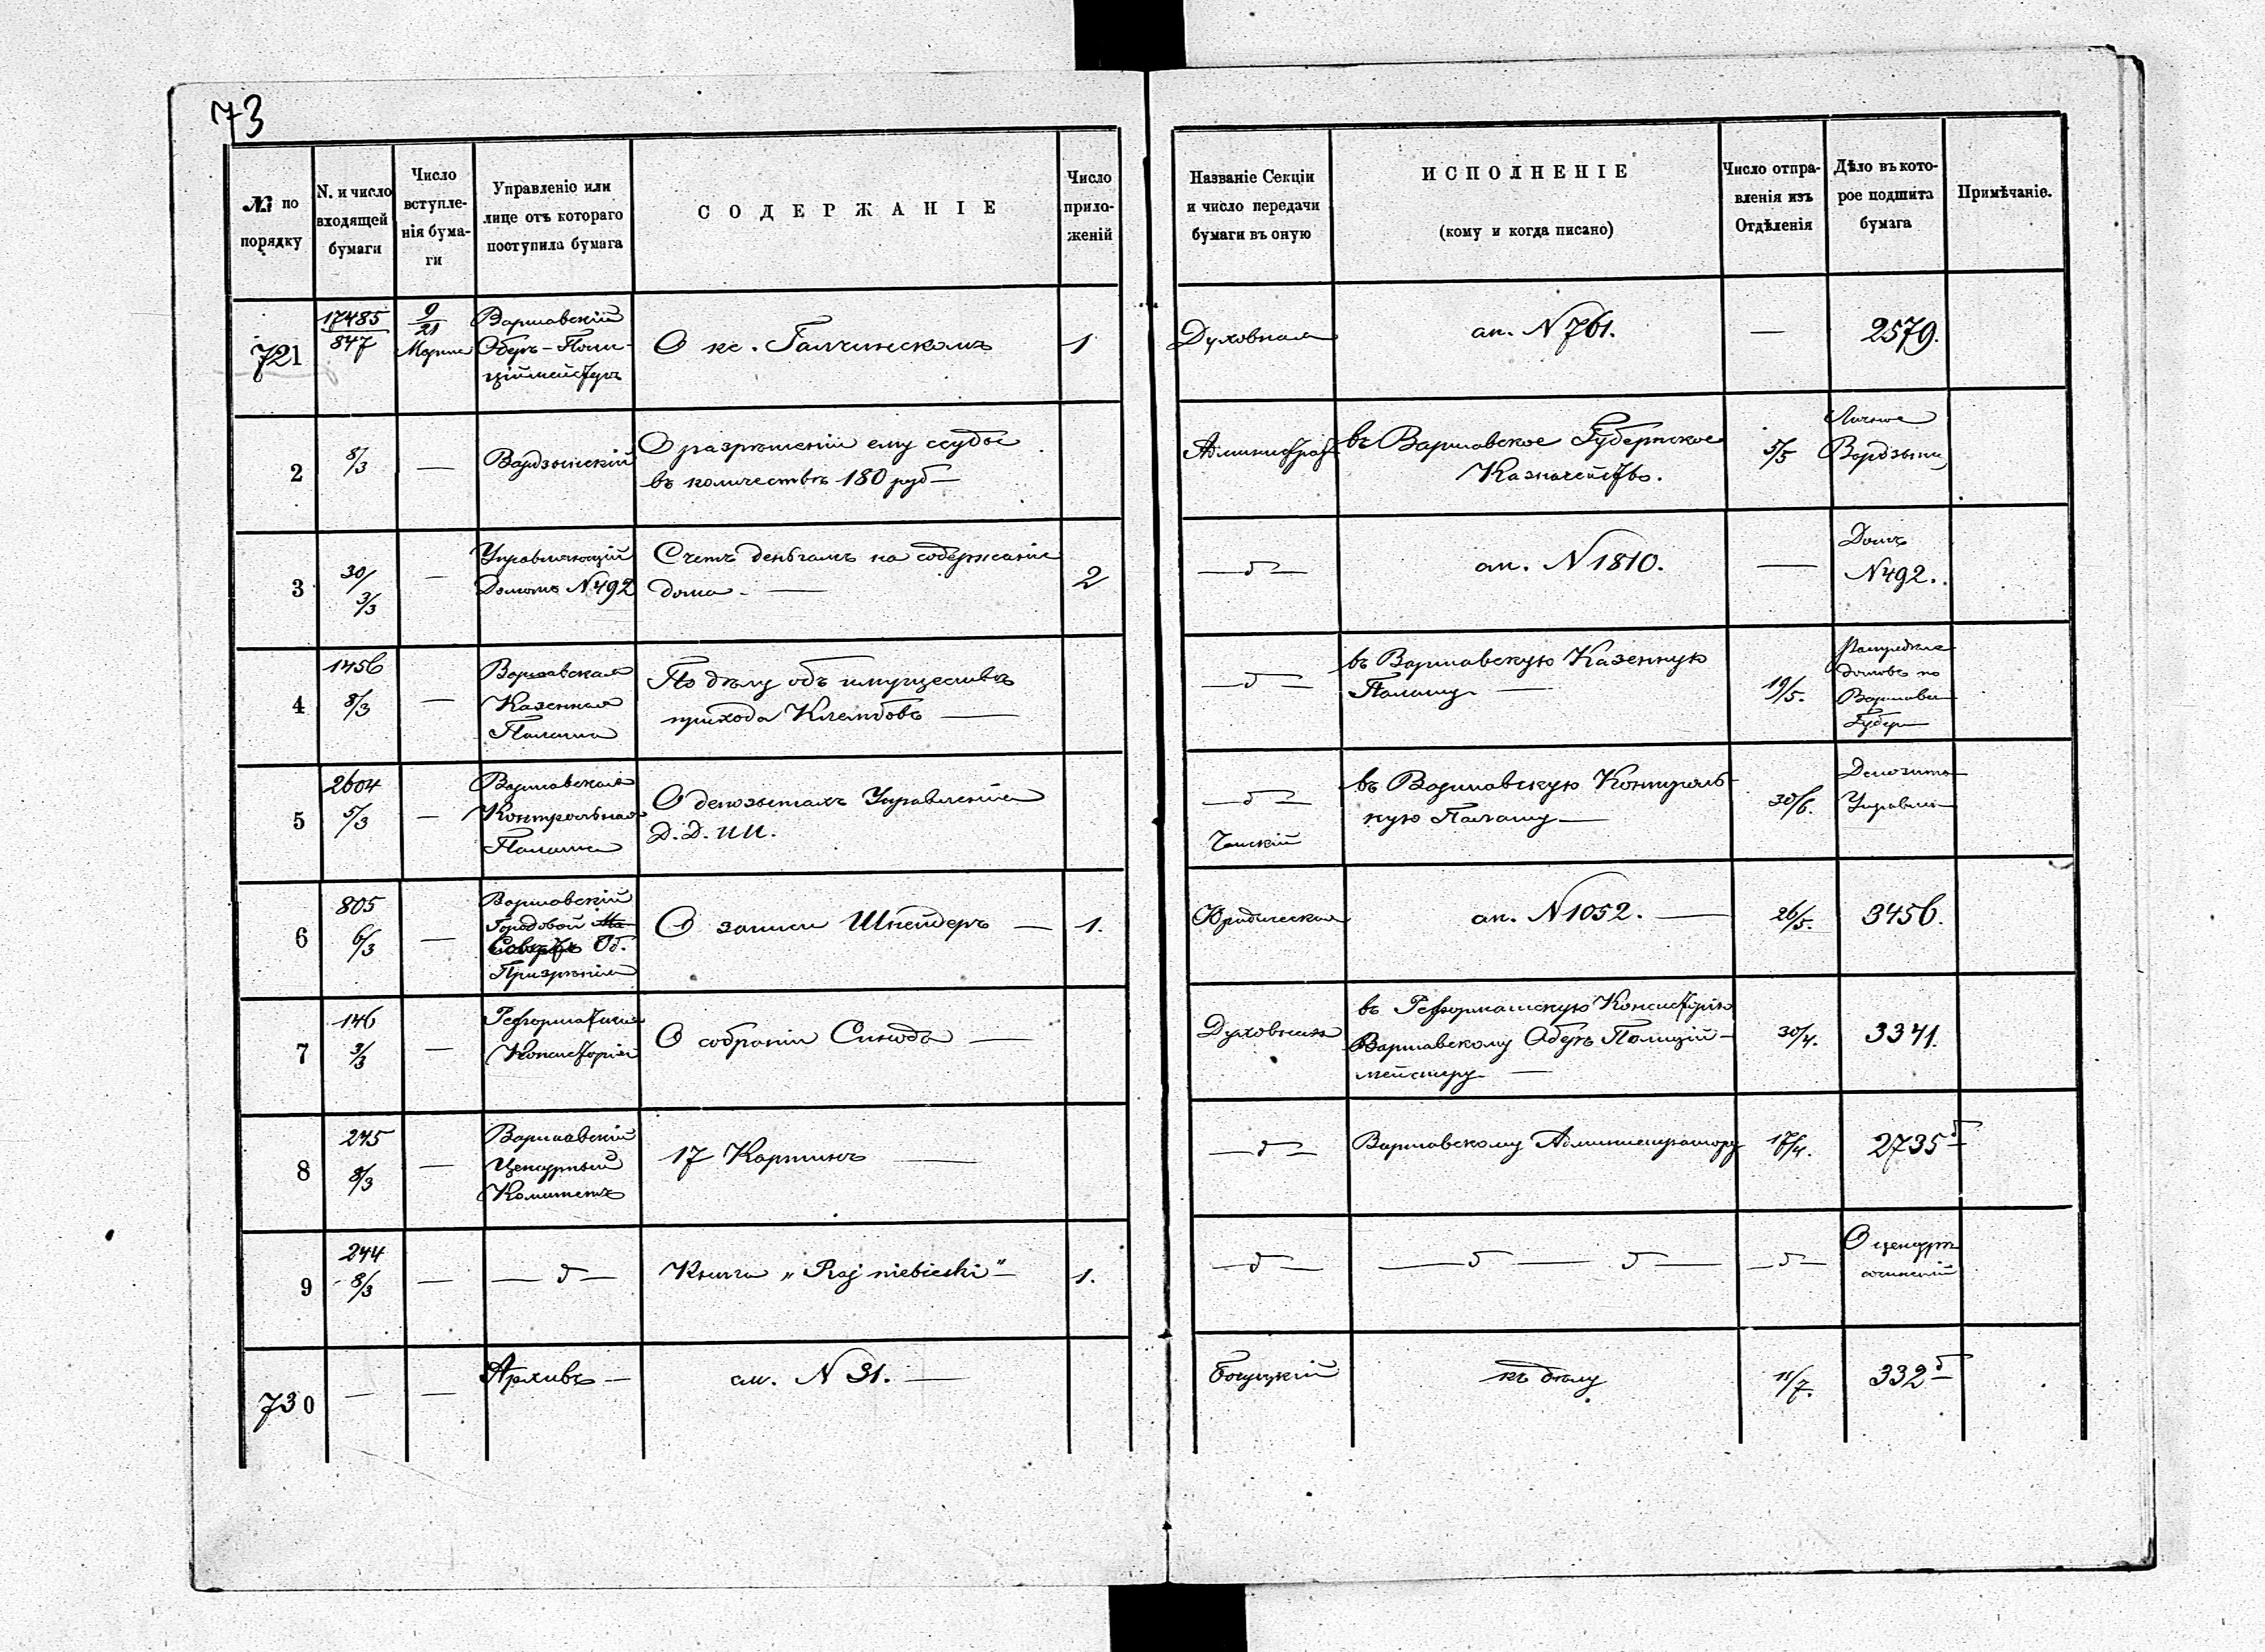 73
№ по порядку
N. и число входящей бумаги
Число вступленія бумаги
Управленіе или лице отъ котораго поступила бумага
СОДЕРЖАНІЕ
Число приложеній
Названіе Секціи и число передачи бумаги въ оную
ИСПОЛНЕНІЕ
(кому и когда писано)
Число отправленія изъ Отдѣленія
Дѣло въ которое подшита бумага
Примѣчаніе.
721
17485
847
9/21
Марта
Варшавскій
Оберъ-Поли-
ціймейстеръ
О кс. Галчинскомъ
1
Духовная
ап. N 761.
—
2579.
2
8/3
—
Вардзынскій
О разрѣшеніи ему ссуды
въ количествѣ 180 руб —
Администрат
въ Варшавское Губернское
Казначейство.
5/5
Личное
Вардзын
3
30/
3/3
—
Управляющій
Домомъ N 492
Счетъ деньгамъ на содержаніе
дома. —
2
— д —
ап. N 1810.
—
Домъ
N 492.
4
1456
8/3
—
Варшавская
Казенная
Палата
По дѣлу объ имуществѣ
прихода Клембовъ —
— д —
въ Варшавскую Казенную
Палату —
19/5.
домовъ по
Варшавск
Губер
5
2604
5/3
—
Варшавская
Контрольная
Палата
О депозытахъ Управленія
Д. Д. И И.
— д —
въ Варшавскую Контроль-
ную Палату —
30/6.
Депозита
Управле
6
805
6/3
—
Варшавскій
Городовой
Совѣтъ Об.
Призрѣнія
О записи Шнейдеръ —
1.
Юридическая
ап. N 1052. —
26/5.
3456.
7
146
3/3
—
Реформатская
Консисторія
О собраніи Синода —
Духовная
въ Реформатскую Консисторію
Варшавскому Оберъ Полицій-
мейстеру —
30/4.
3341.
8
245
8/3
—
Варшавскій
Ценсурный
Комитетъ
17 Картинъ —
— д —
Варшавскому Администратору
17/4.
2735 б
9
244
8/3
—
— д —
Книга „Raj niebieski" —
1.
— д —
— д — д —
— д —
О ценсурѣ
сочиненій
730
—
—
Архивъ —
ап. N 31. —
къ дѣлу
11/7.
332 б